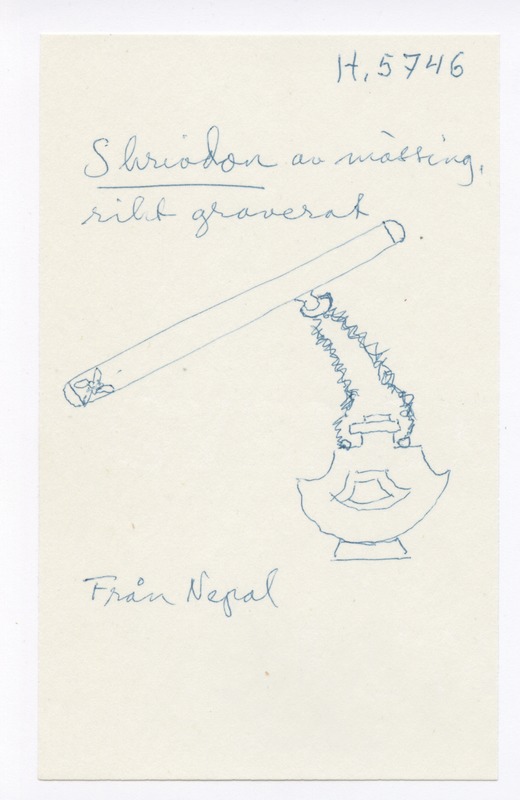 H. 5746
Skrivdon av mässing,
rikt graverat
Från Nepal